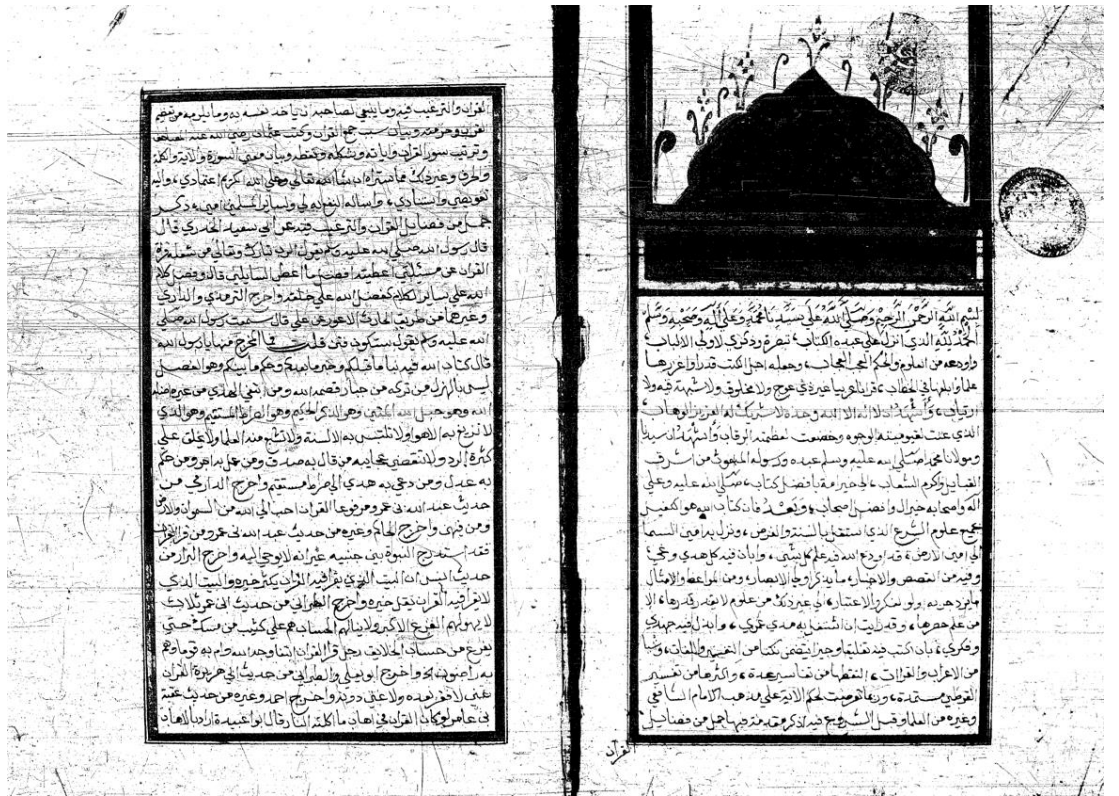 بسم الله الرحمن الرحيم وصلى الله على سيدنا محمد وعلى آله وصحبه وسلم
الحمد لله الذي انزل على عبده الكتاب، تبصرة وذكرى لاولي الالباب،
واودعه من العلوم والحكم العجب العجاب، وجعله اجل الكتب قدرا واغزرها
علما وابلغها في الخطاب، قرانا عربيا غير ذي عوج ولا مخلوق ولا شبهة فيه ولا
ارتياب، واشهد ان لا اله الا الله وحده لا شريك له العزيز الوهاب،
الذي عنت لقيوميته الوجوه وخضعت لعظمته الرقاب واشهد ان سيدنا
ومولانا محمد صلى الله عليه وسلم عبده ورسوله المبعوث من اشرف
القبايل واكرم الشعاب، الى خير امة بافضل كتاب، صلى الله عليه وعلى
آله واصحابه خير ال وافضل اصحاب، وبعد فان كتاب الله هو الكفيل
بجميع علوم الشرع الذي استقل بالسنة والفرض، ونزل به امين السما
الى امين الارض، قد اودع الله فيه علم كل شي، وابان فيه كل هدى وغي،
وفيه من القصص والاخبار، ما يذكر اولي الابصار، ومن المواعظ والامثال
ما يزدجر به اولو الفكر والاعتبار، الى غير ذلك من علوم لا يقدر قدرها، الا
من علم حصرها، وقد رايت ان اشتغل به مدى عمري، وابذل فيه جهدي
وفكري، بان اكتب فيه تعليقا وجيزا يتضمن نكتا من التفسير واللغات، وشيا
من الاعراب والقراات، التقطها من تفاسير عدة، واكثرها من تفسير
القرطبي مستمدة، وربما تعرضت لحكم الاية على مذهب الامام الشافعي
وغيره من العلما وقبل الشروع فيه اذكر مقدمة فيها جمل من فضايل
القران
القران والترغيب فيه وما ينبغي لصاحبه ان ياخذ نفسه به وما يلزمه من تعظيم
القران وحرمته وبيان سبب جمع القران وكتب عثمان رضي الله عنه المصاحف
وترتيب سور القران واياته وشكله ونقطه وبيان معنى السورة والاية والكلمة
والحرف وغير ذلك مما ستراه ان شا الله تعالى وعلى الله الكريم اعتمادي، واليه
تفويضي واستنادي، واساله النفع به لي ولساير المسلمين امين ذكر
جمل من فضايل القران والترغيب فيه عن ابي سعيد الخدري قال
قال رسول الله صلى الله عليه وسلم يقول الرب تبارك وتعالى من شغله قراة
القران عن مسئلتي اعطيته افضل ما اعطي السايلين قال وفضل كلام
الله على ساير الكلام كفضل الله على خلقه واخرج الترمذي والدارمي
وغيرهما من طريق الحارث الاعور عن علي قال سمعت رسول الله صلى
الله عليه وسلم يقول ستكون فتن قلت فما المخرج منها يا رسول الله
قال كتاب الله فيه نبا ما قبلكم وخبر ما بعدكم وحكم ما بينكم وهو الفصل
ليس بالهزل من تركه من جبار قصمه الله ومن ابتغى الهدى من غيره اضله
الله وهو حبل الله المتين وهو الذكر الحكيم وهو الصراط المستقيم وهو الذي
لا تزيغ به الاهوا ولا تلتبس به الالسنة ولا تشبع منه العلما ولا يخلق على
كثرة الرد ولا تنقضي عجايبه من قال به صدق ومن عمل به اجر ومن حكم
به عدل ومن دعى به هدي الى صراط مستقيم واخرج الدارمي من
حديث عبد الله بن عمرو مرفوعا القران احب الى الله من السموات والارض
ومن فيهن واخرج الحاكم وغيره من حديث عبد الله بن عمرو من قرا القران
فقد استدرج النبوة بين جنبيه غير انه لا يوحى اليه واخرج البزار من
حديث انس ان البيت الذي يقرا فيه القران يكثر خيره والبيت الذي
لا يقرا فيه القران يقل خيره واخرج الطبراني من حديث ابن عمر ثلاث
لا يهولهم الفزع الاكبر ولا ينالهم الحساب هم على كثيب من مسك حتى
يفرغ من حساب الخلايق رجل قرا القران ابتغا وجه الله وام به قوما وهم
به راضون واخرج ابو يعلى والطبراني من حديث ابي هريرة القران
غنى لا فقر بعده ولا غنى دونه واخرج احمد وغيره من حديث عقبة
بن عامر لو كان القران في اهاب ما اكلته النار قال ابو عبيدة اراد بالاهاب